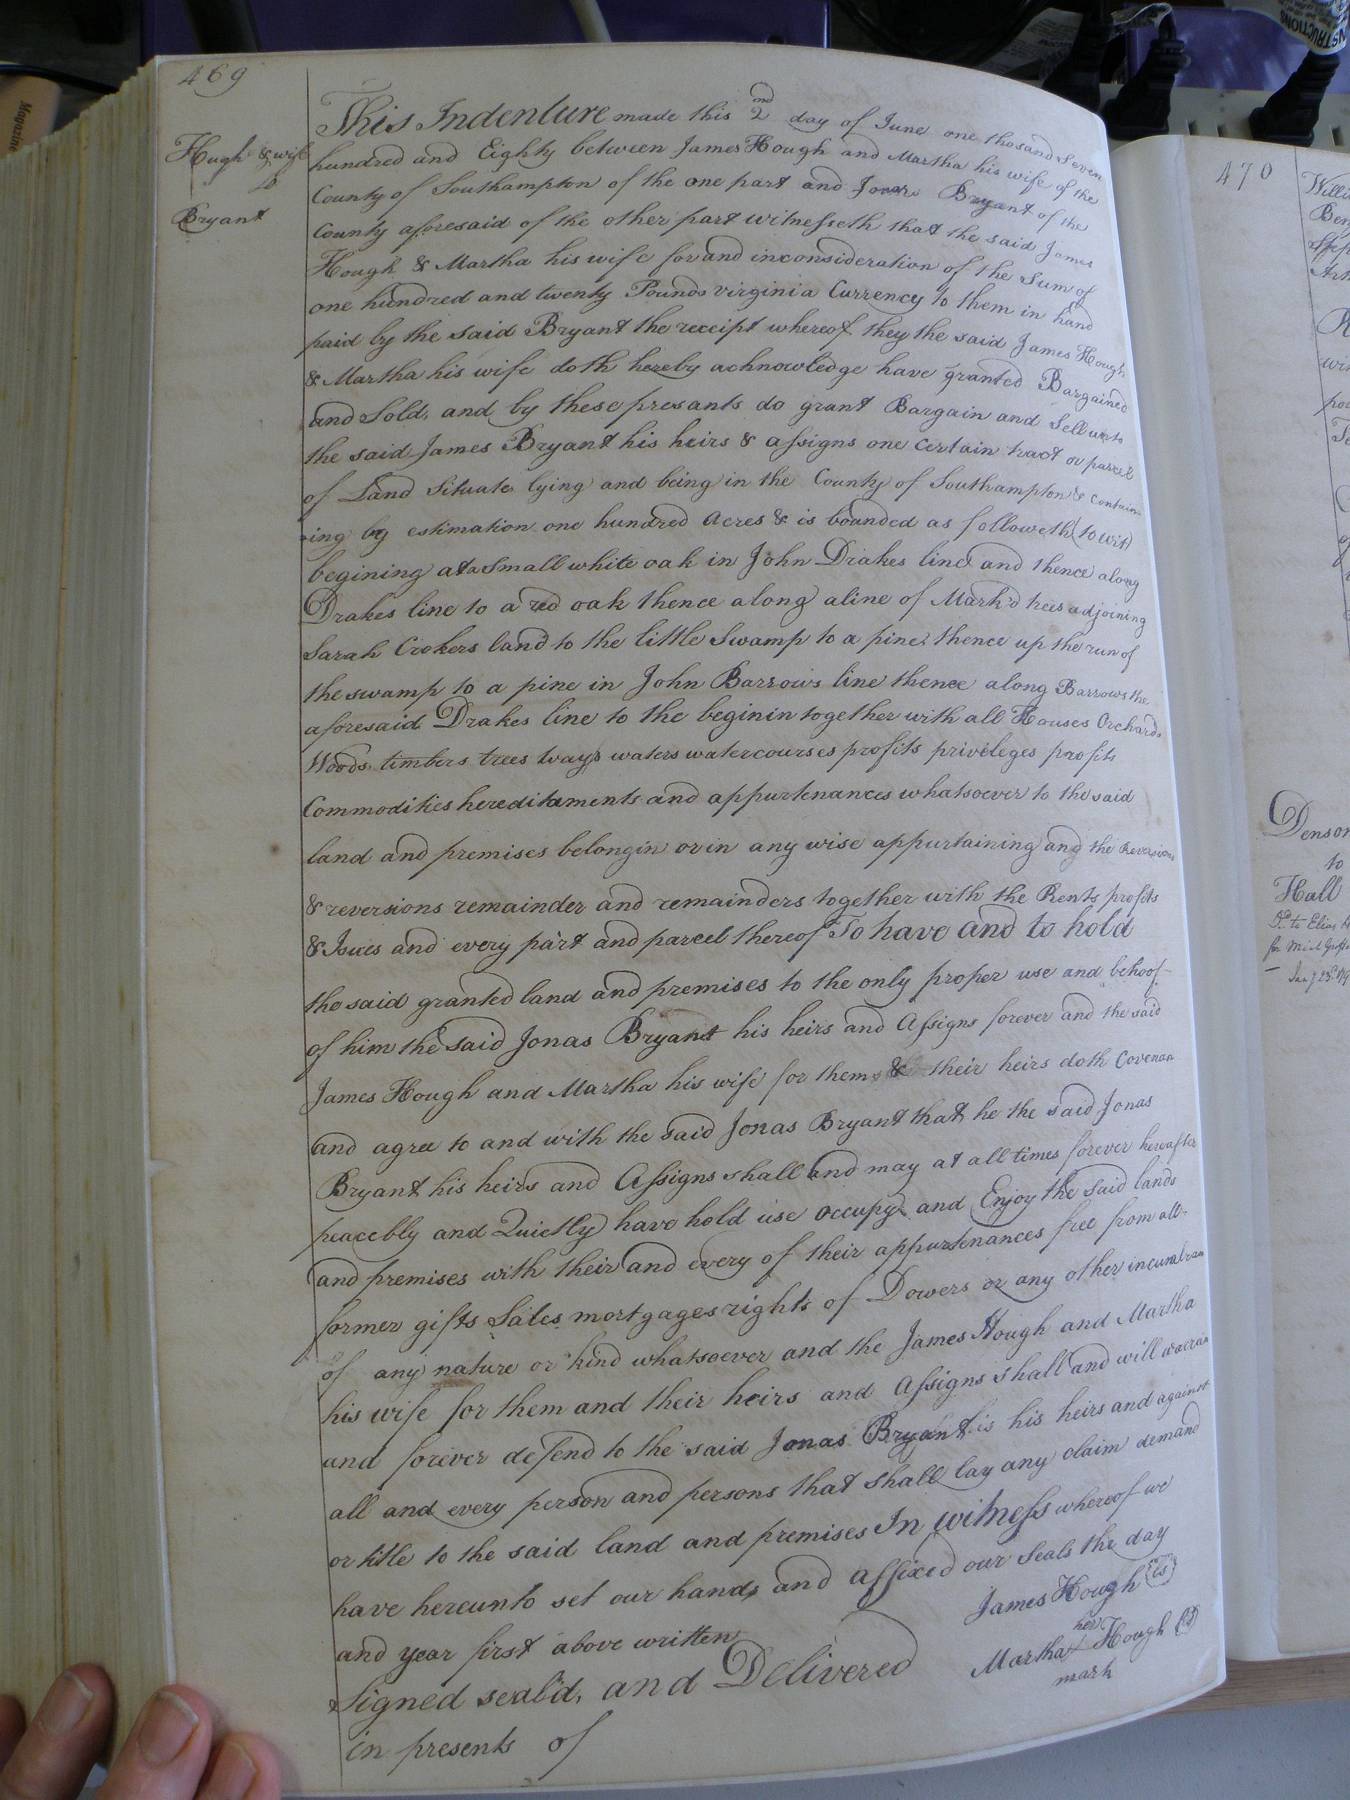 469
Hugh & wife
to
Bryant
This Indenture made this 2nd day of June one thosand Seven
hundred and Eighty between James Hough and Martha his wife of the
County of Southampton of the one part and Jonas Bryant of the
County aforesaid of the other part witnesseth that the said James
Hough & Martha his wife for and inconsideration of the Sum of
one hundred and twenty Pounds virginia Currency to them in hand
paid by the said Bryant the receipt whereof they the said James Hough
& Martha his wife doth hereby acknowledge have granted Bargained
and Sold, and by these presants do grant Bargain and Sell unto
the said James Bryant his heirs & assigns one certain tract or parcel
of Land Situate lying and being in the County of Southampton & contain
-ing by estimation one hundred Acres & is bounded as followeth (to wit)
begining at a Small white oak in John Drakes line and thence along
Drakes line to a red oak thence along aline of Mark'd trees adjoining
Sarah Crokers land to the little Swamp to a pine thence up the run of
the swamp to a pine in John Barrows line thence along Barrows the
aforesaid Drakes line to the beginin together with all Houses Orchards
Woods timbers trees ways waters watercourses profits privileges profits
Commodities hereditaments and appurtenances whatsoever to the said
land and premises belongin or in any wise appurtaining and the Reversion
& reversions remainder and remainders together with the Rents profits
& Isues and every part and parcel thereof To have and to hold
the said granted land and premises to the only proper use and behoof
of him the said Jonas Bryant his heirs and Assigns forever and the said
James Hough and Martha his wife for them & their heirs doth Covenan
and agree to and with the said Jonas Bryant that he the said Jonas
Bryant his heirs and Assigns shall and may at all times forever hereafter
peacebly and Quietly have hold use occupy and Enjoy the said lands
and premises with their and every of their appurtenances free from all
former gifts Sales mortgages rights of Dowers or any other incumbran
of any nature or kind whatsoever and the James Hough and Martha
his wife for them and their heirs and Assigns shall and will warran
and forever defend to the said Jonas Bryant is his heirs and against
all and every person and persons that shall lay any claim demand
or title to the said land and premises In witness whereof we
have hereunto set our hands and affixed our Seals the day
and year first above written
Signed seal'd, and Delivered
in presents of
James Hough (LS)
her
Martha Hough (LS)
mark
470
Denson
to
Hall